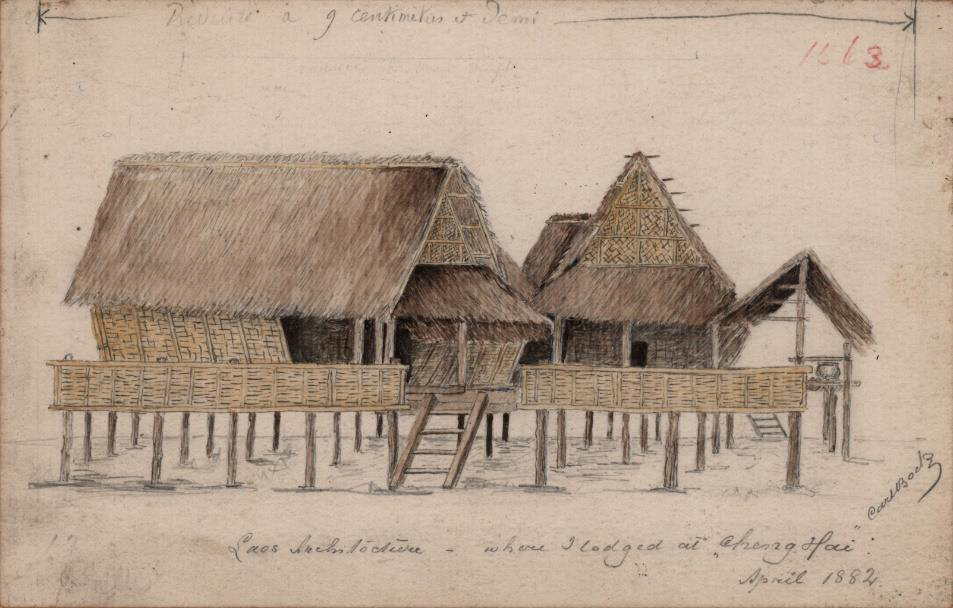 à 9 centimetres et Demi
1663
Carl Bock
Laos Architecture - where I lodged at "Cheng Hai"
April 1882.